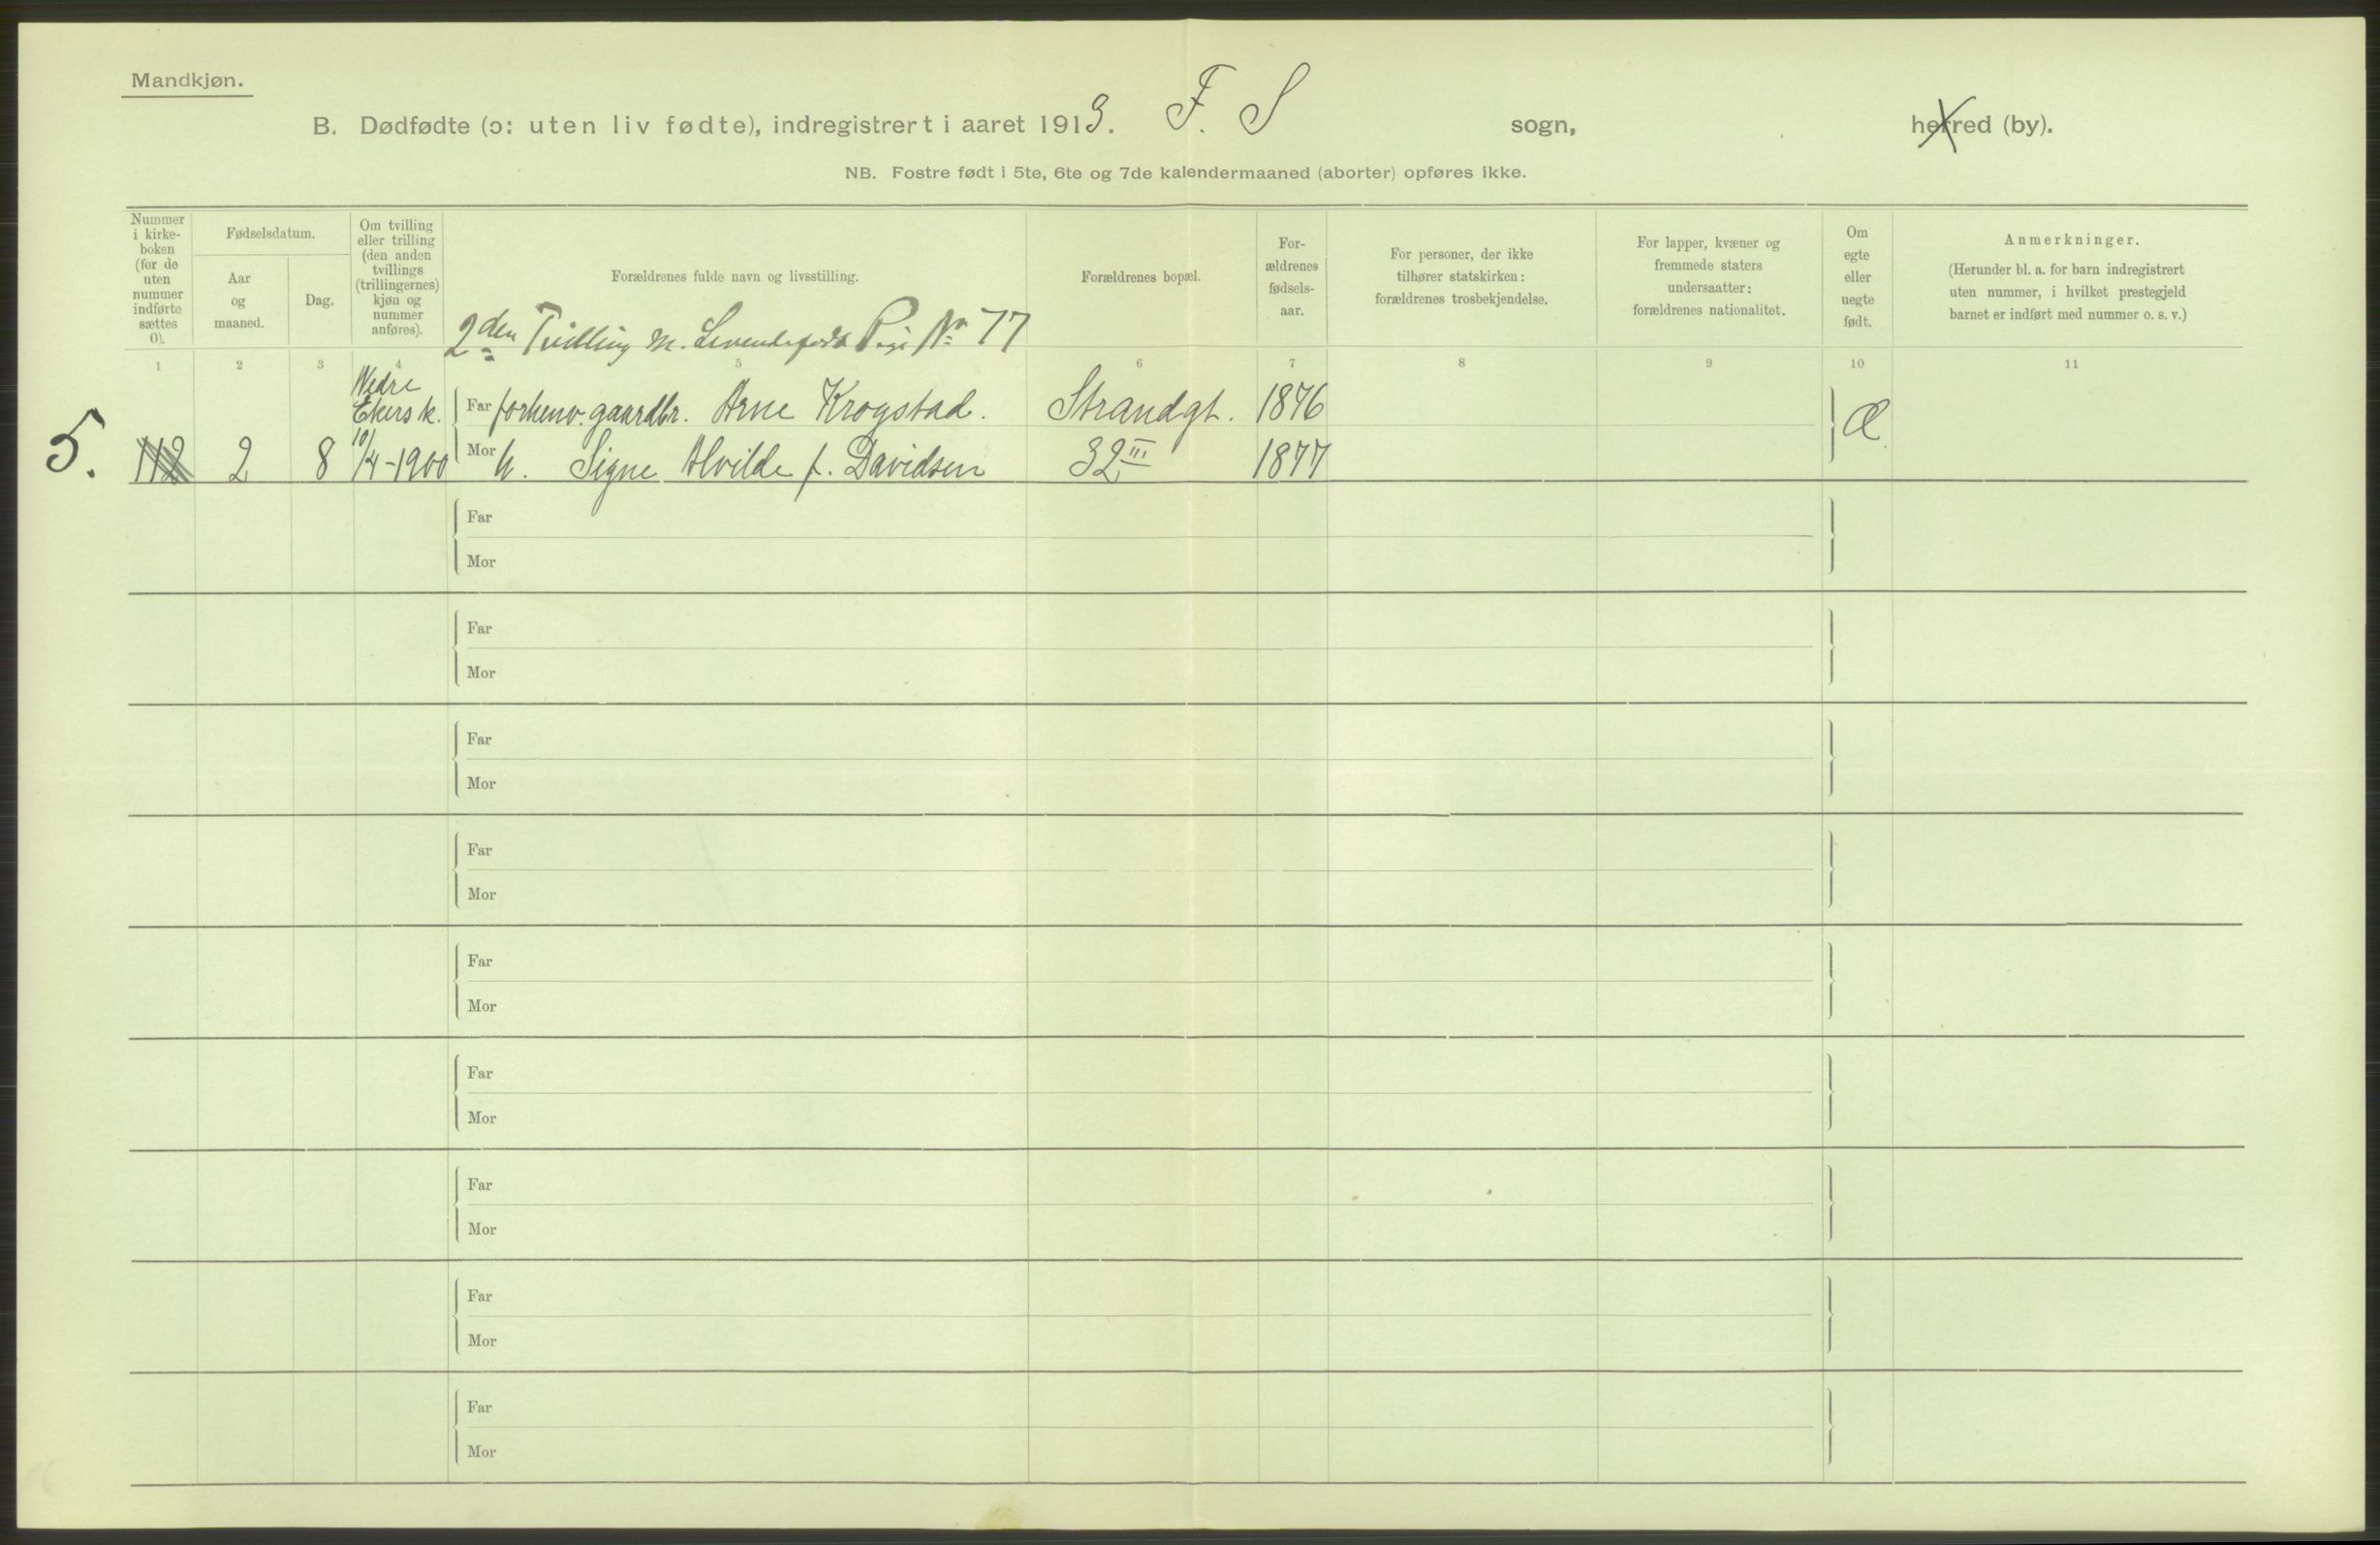 Mandkjøn.
B. Dødfødte (ɔ: uten liv fødte), indregistrert i aaret 1913. F. S sogn, herred (by).
NB. Fostre født i 5te, 6te og 7de kalendermaaned (aborter) opføres ikke.
Nummer i kirke-boken (for de uten nummer indførte sættes 0).
Fødselsdatum.
Aar og maaned.
Dag.
Om tvilling eller trilling (den anden tvillings (trillingernes) kjøn og nummer anføres).
Forældrenes fulde navn og livsstilling.
Forældrenes bopæl.
For-ældrenes fødsels-aar.
For personer, der ikke tilhører statskirken: forældrenes trosbekjendelse.
For lapper, kvæner og fremmede staters undersaatter: forældrenes nationalitet.
Om egte eller uegte født.
Anmerkninger.
(Herunder bl. a. for barn indregistrert uten nummer, i hvilket prestegjeld barnet er indført med nummer o. s. v.)
2den Tvilling m. Levendefødt Pige No 77
1 2 3 4 5 6 7 8 9 10 11
Nedre
Ekers k. Far forhenv. gaardbr. Arne Krogstad. Strandgt. 1876 Æ
5. 112 2 8 10/4-1900 Mor h. Signe Alvilde f. Davidsen 32 III 1877
Far
Mor
Far
Mor
Far
Mor
Far
Mor
Far
Mor
Far
Mor
Far
Mor
Far
Mor
Far
Mor